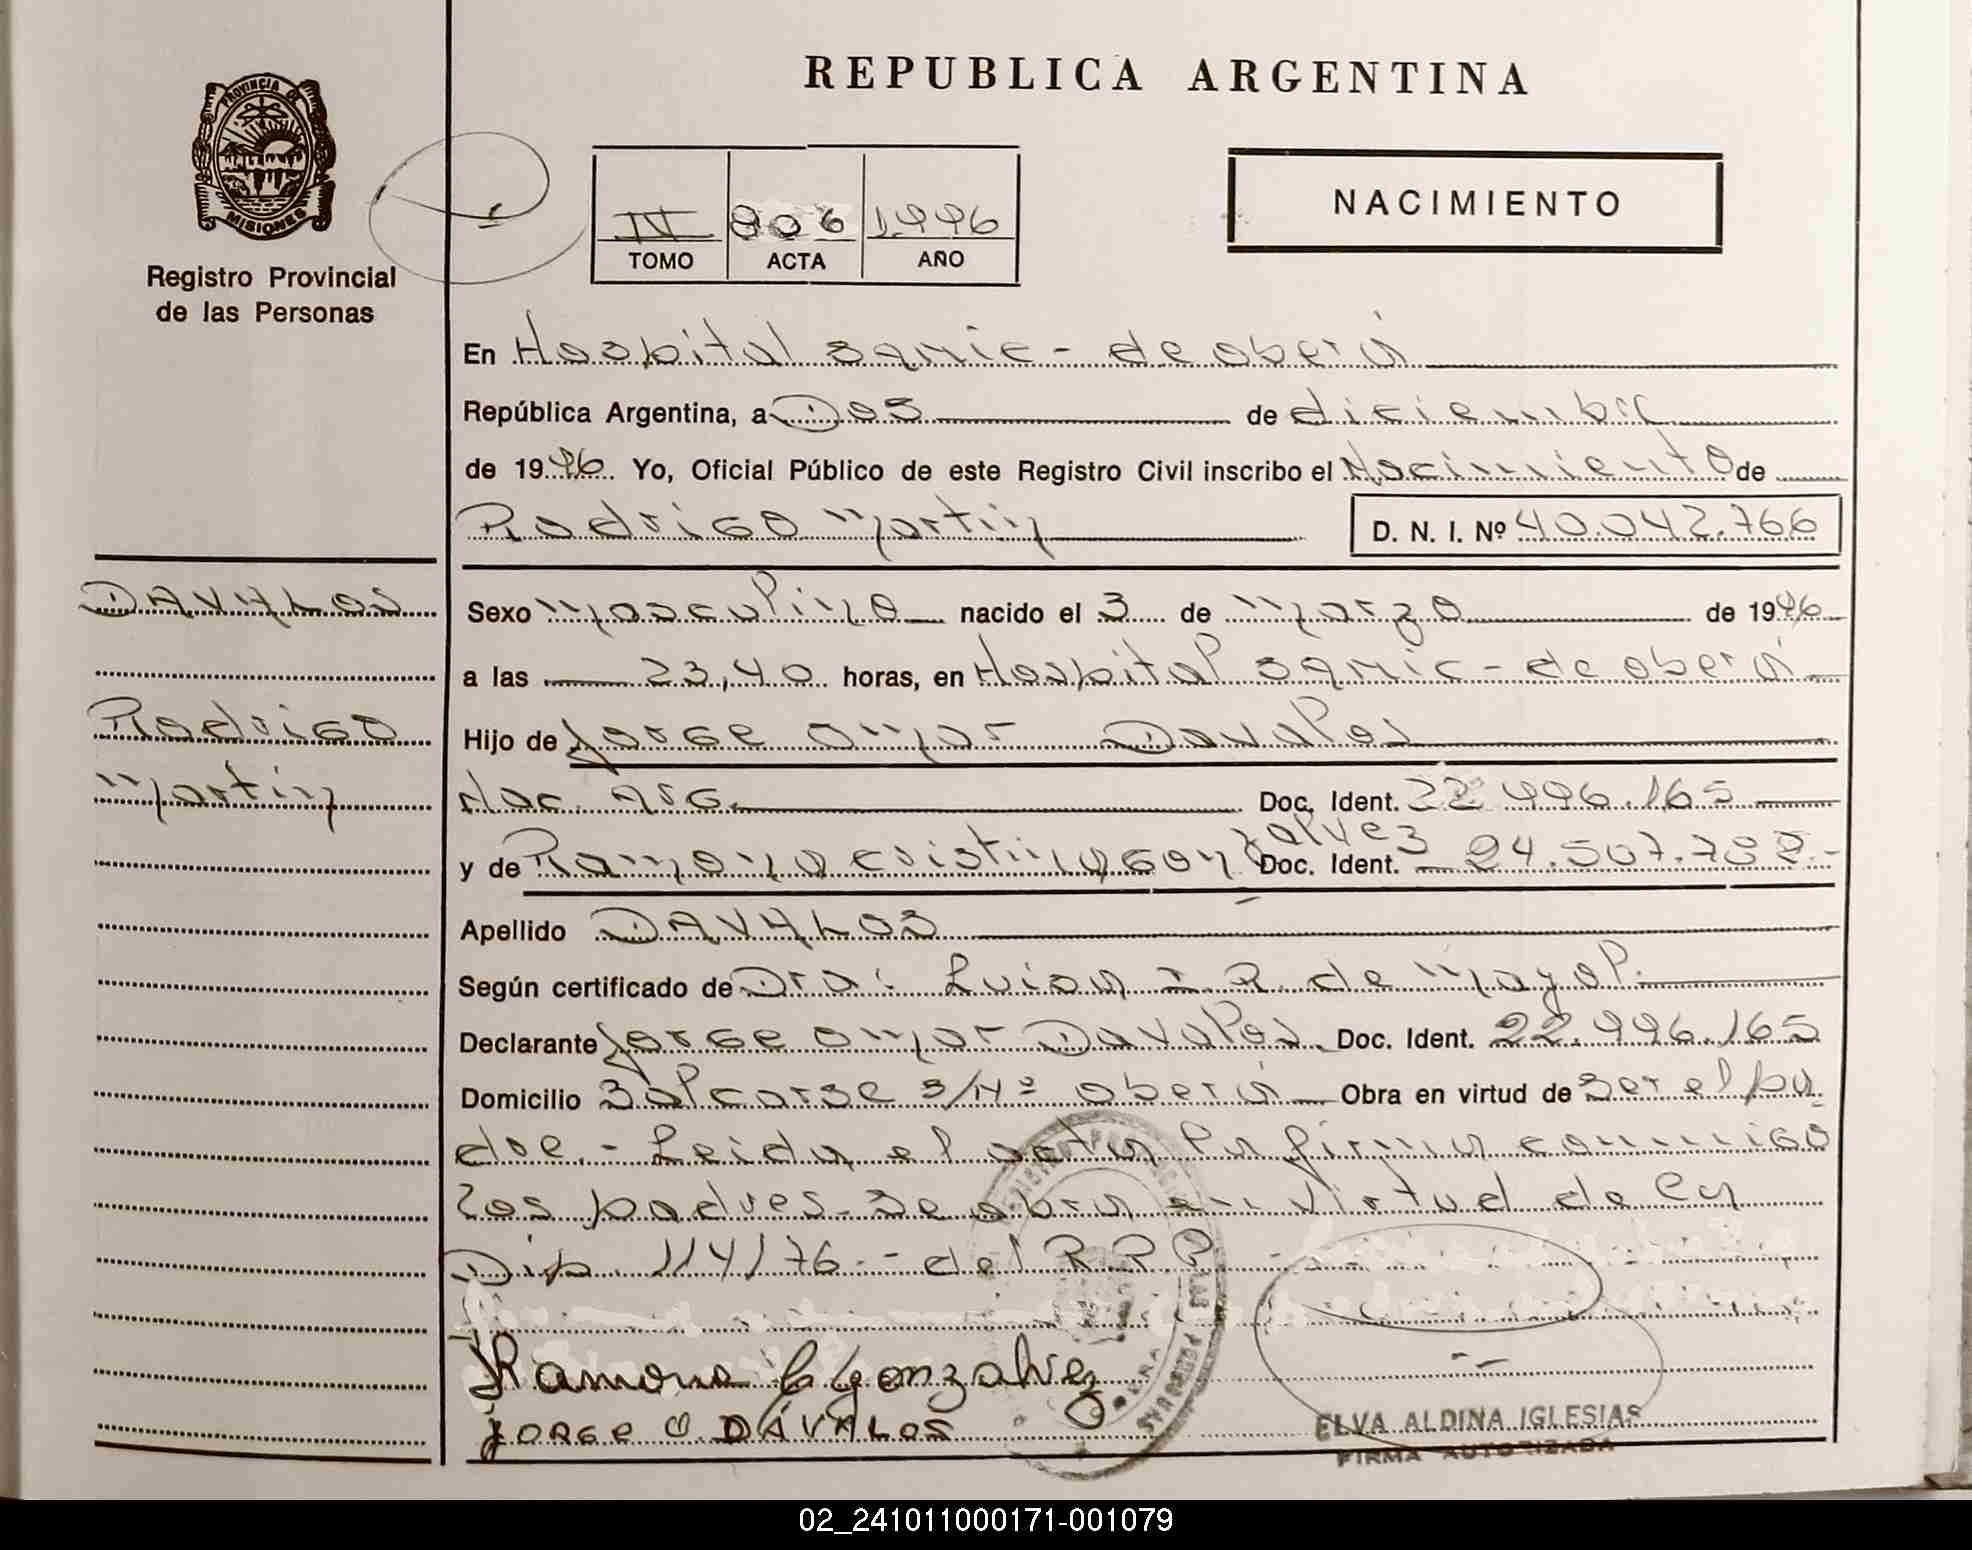 REPUBLICA ARGENTINA
PROVINCIA DE MISIONES
Registro Provincial
de las Personas
IV 806 1996
TOMO ACTA AÑO
NACIMIENTO
En Hospital Samic - de oberá
República Argentina, a Dos de diciembre
de 1996 Yo, Oficial Público de este Registro Civil inscribo el Nacimiento de
Rodrigo Martin D. N. I. Nº 40.042.766
DAVALOS
Rodrigo
Martin
Sexo Masculino nacido el 3 de Marzo de 1996
a las 23,40 horas, en Hospital Samic - de oberá
Hijo de Jorge Omar Davalos
Nac. Arg. Doc. Ident. 22.996.165
y de Ramona cristina Gonzalvez Doc. Ident. 24.507.782.-
Apellido DAVALOS
Según certificado de Dra: Luisa I. R. de Mayol.
Declarante Jorge Omar Davalos Doc. Ident. 22.996.165
Domicilio Balcarse S/Nº oberá Obra en virtud de Ser el pa
dre.- Leida el acta la firman conmigo
Los padres. Se obra en virtud de la
Disp. 114/76.- del R.P.P.
Ramona C Gonzalvez
JORGE O. DÁVALOS
ELVA ALDINA IGLESIAS
FIRMA AUTORIZADA
02_241011000171-001079